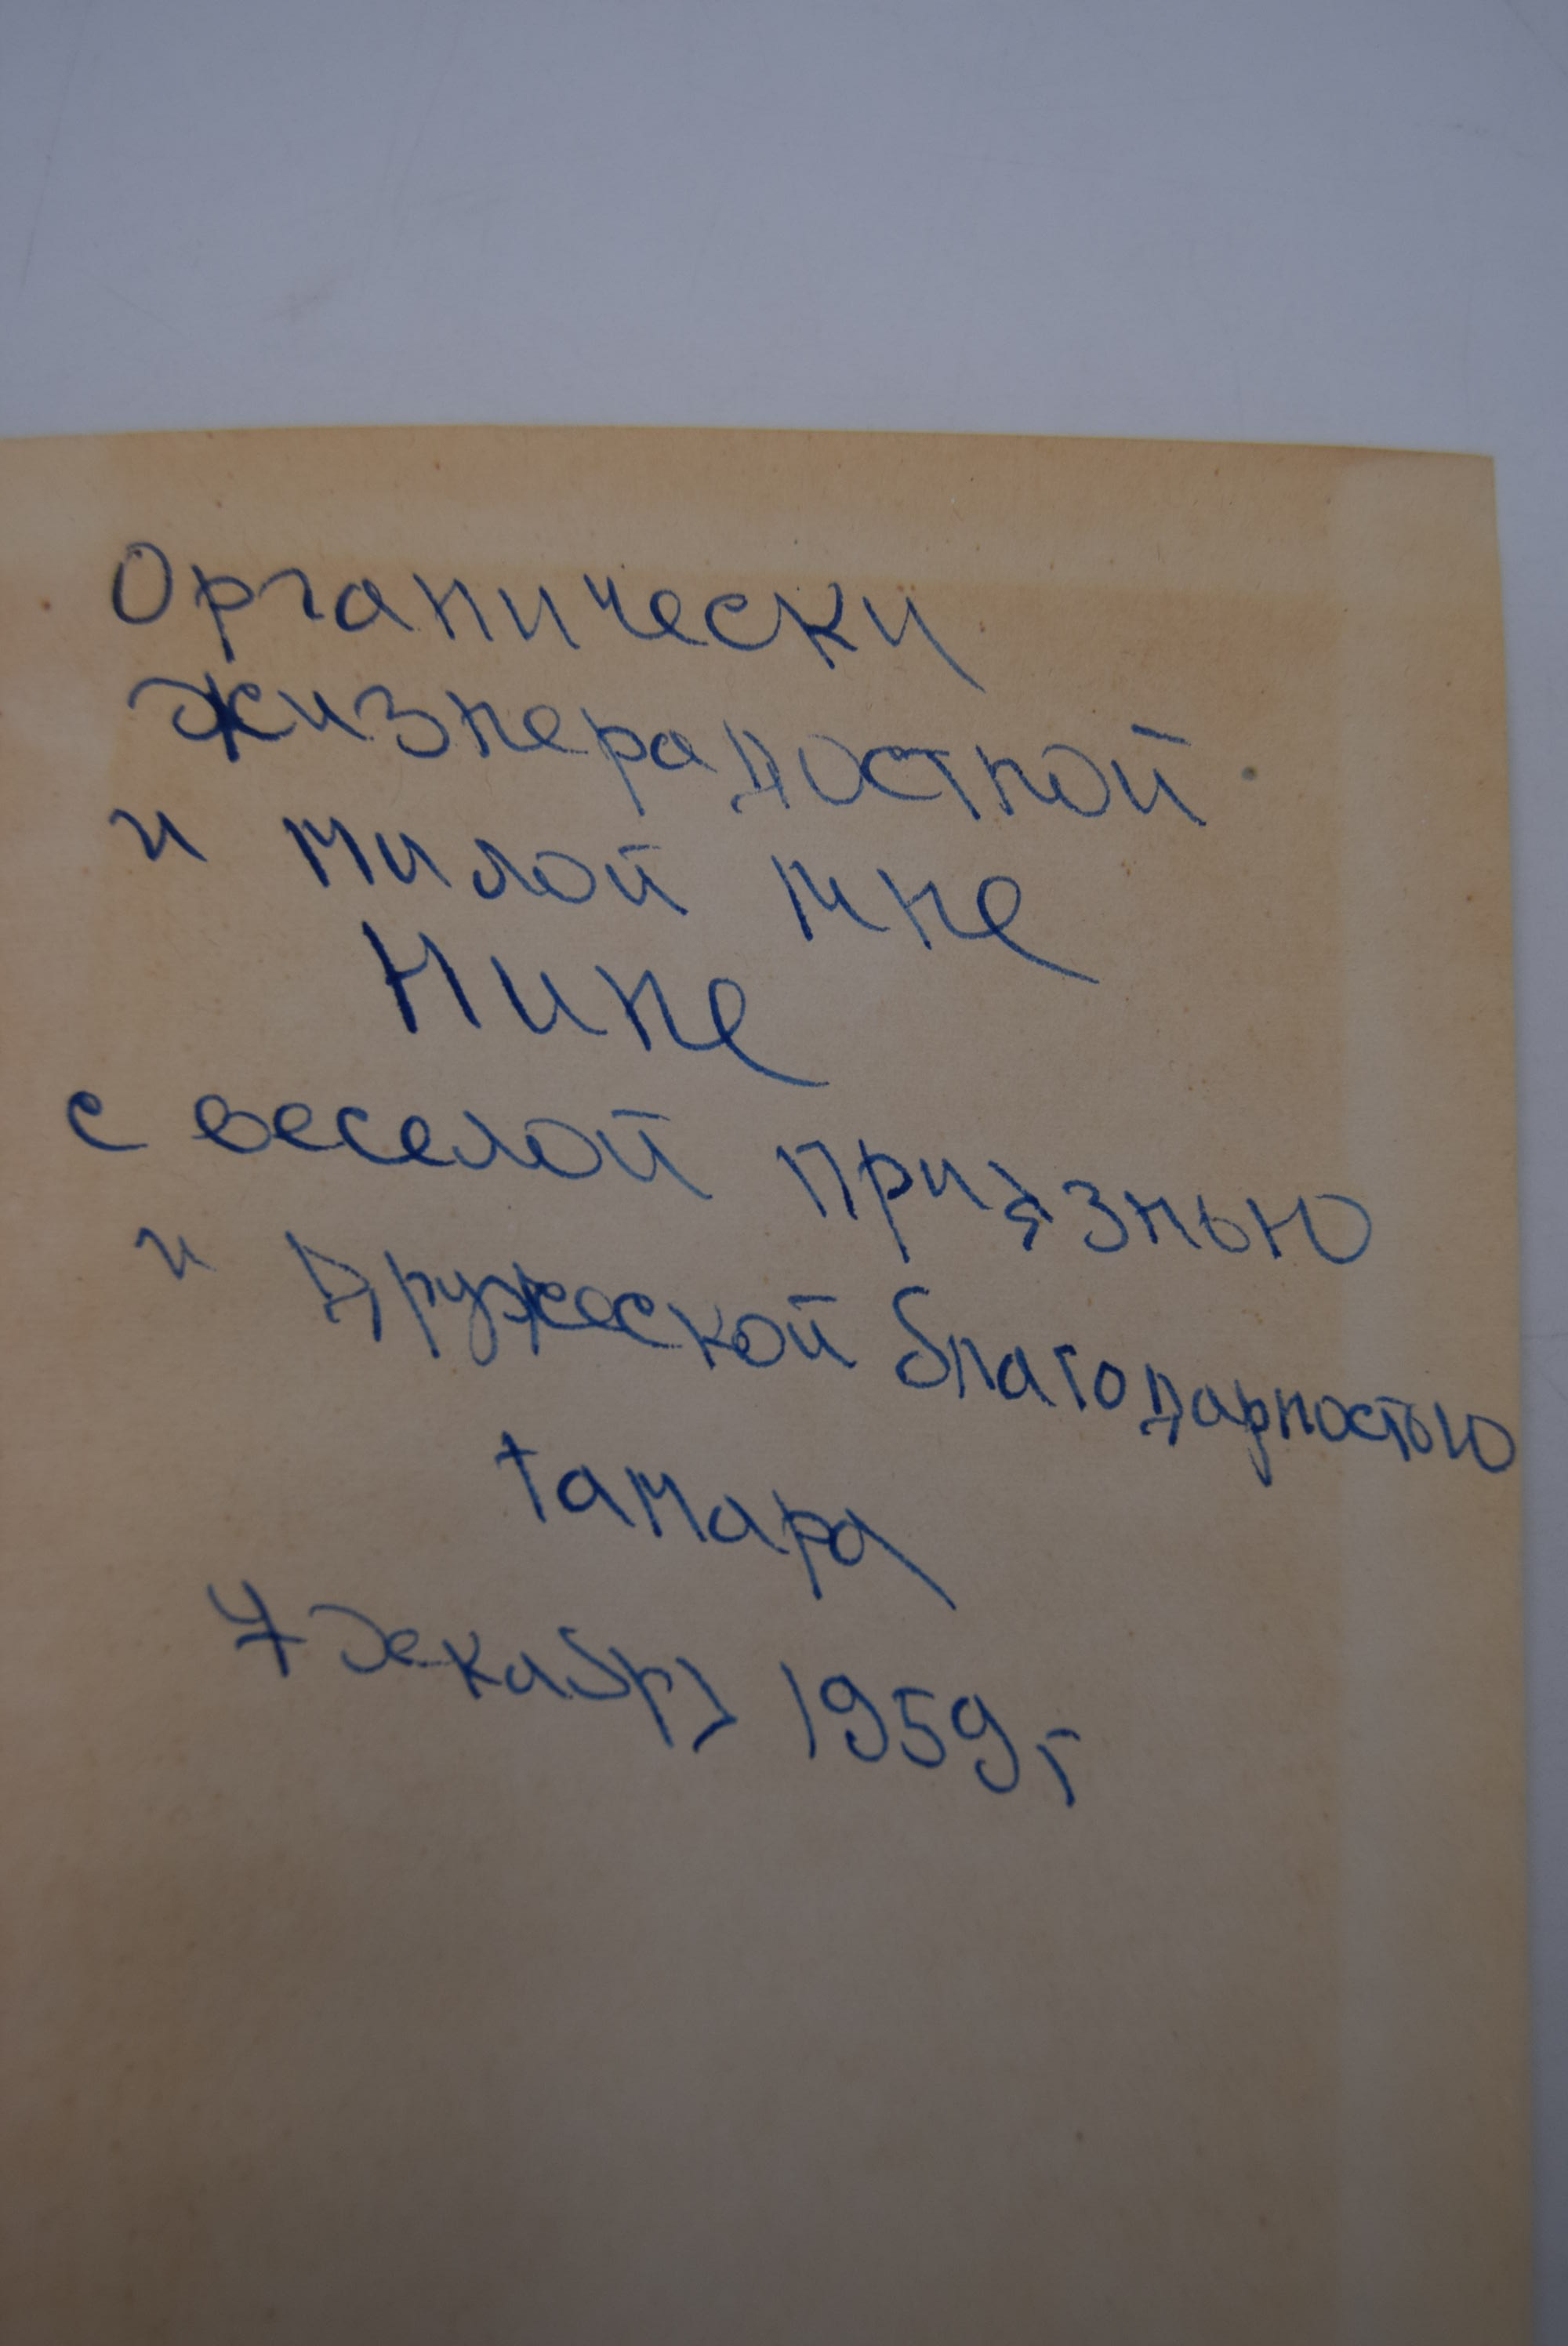 Органически
жизнерадостной
и милой мне
Нине
с веселой приязнью
и дружеской благодарностью
тамара
7 декабря 1959 г